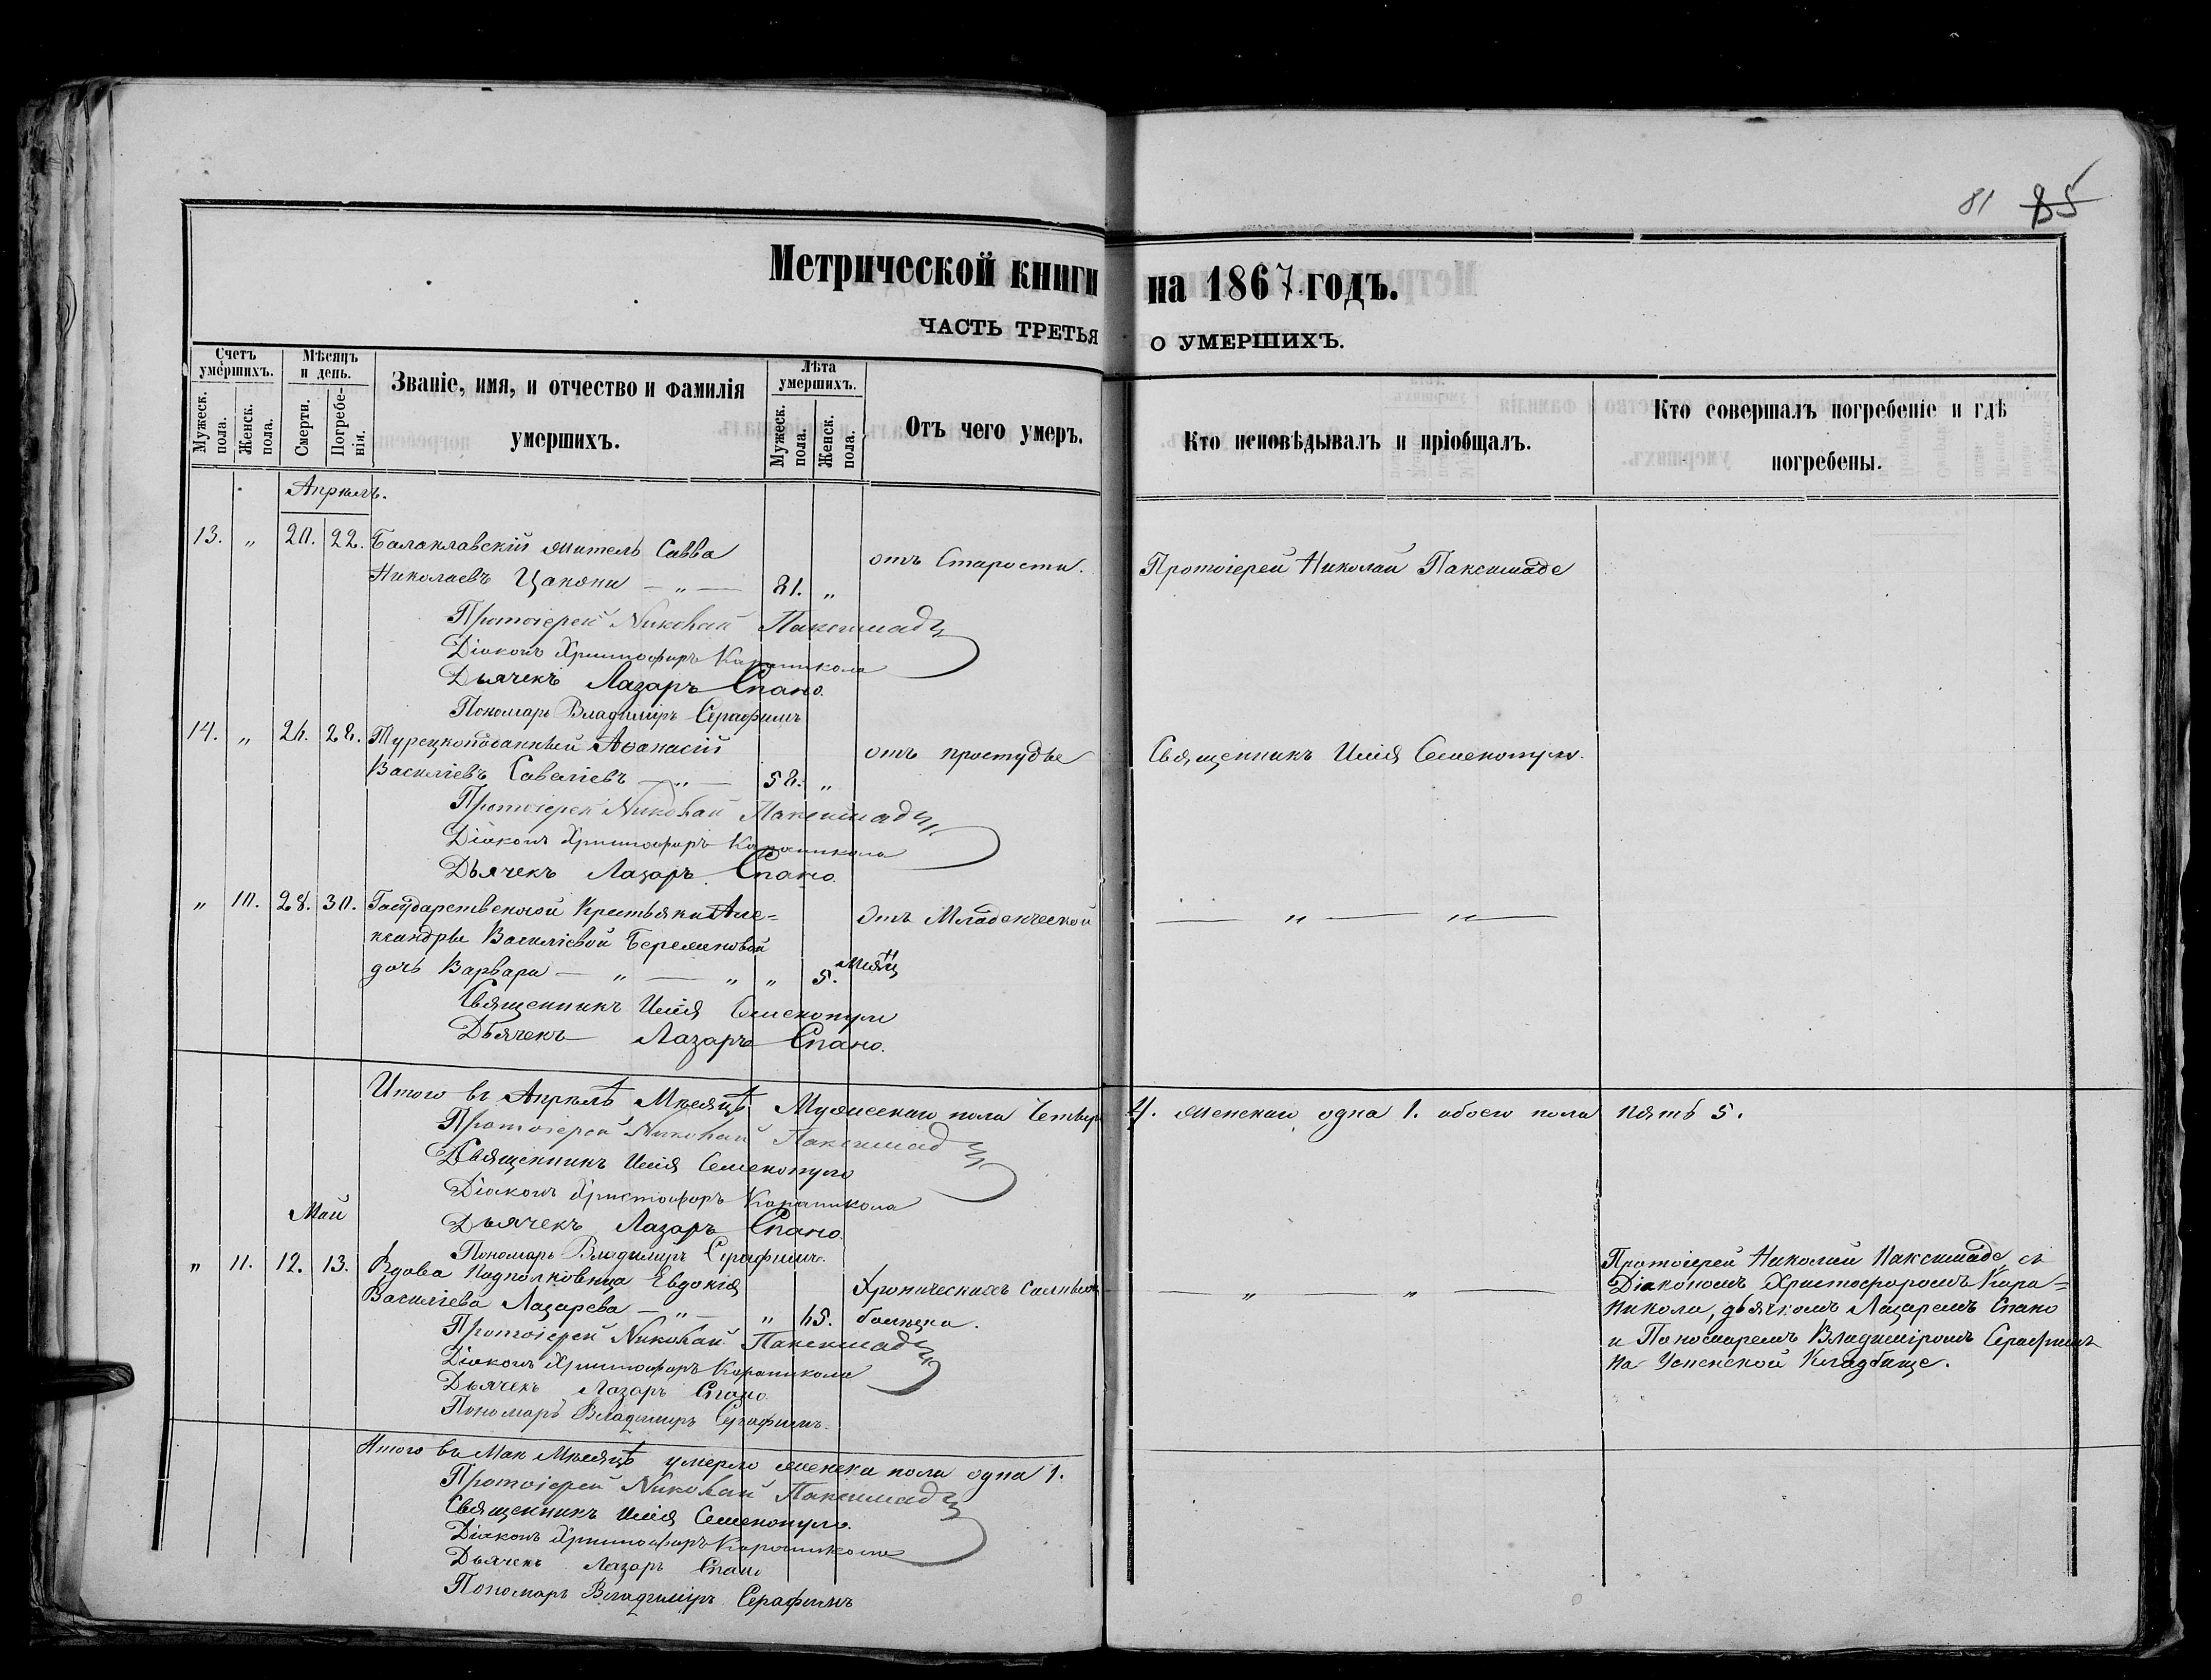 81 85
Метрической книги на 1867 годъ.
ЧАСТЬ ТРЕТЬЯ О УМЕРШИХЪ.
Счетъ умершихъ.
Мужеск. пола.
Женск. пола.
Мѣсяцъ и день.
Смерти.
Погребенія.
Званіе, имя, и отчество и фамилія умершихъ.
Лѣта умершихъ.
Мужеск. пола.
Женск. пола.
Отъ чего умеръ.
Кто исповѣдывалъ и пріобщалъ.
Кто совершалъ погребеніе и гдѣ погребены.
Апрѣль.
13. „ 20. 22. Балаклавскій житель Савва
Николаевъ Цакони — „ — 81. „ отъ Старости. Протоіерей Николай Паксимаде
Протоіерей Николай Паксимади
Діаконъ Христофоръ Караникола
Дьячекъ Лазарь Спано.
Пономарь Владиміръ Серафимъ
14. „ 26. 28. Турецкоподанный Аѳанасій
Василіевъ Савеліевъ — „ — 58. „ отъ простуды Священникъ Илія Семенопуло.
Протоіерей Николай Паксимади
Діаконъ Христофоръ Караникола
Дьячекъ Лазарь Спано.
„ 10. 28. 30. Государственной Крестьянки Але=
ксандры Василіевой Беремковой
дочь Варвара — „ — „ „ 5. Мѣсяц Отъ Младенческой — „ — „ —
Священникъ Илія Семенопуло
Дьячекъ Лазарь Спано.
Итого въ Апрѣлѣ Мѣсяцѣ Мужескаго пола Четыр 4. женскаго одна 1. обоего пола пять 5.
Протоіерей Николай Паксимади
Священникъ Илія Семенопуло
Діаконъ Христофоръ Караникола
Дьячекъ Лазарь Спано
Пономарь Владиміръ Серафимъ.
Май
„ 11. 12. 13. Вдова Подполковница Евдокія
Василіева Лазарева — „ — „ 65. Хроническихъ
болѣзни. — „ — „ —
Протоіерей Николай Паксимаде съ
Діакономъ Христофоромъ Кара=
никола, дьячкомъ Лазаремъ Спано
и Пономаремъ Владиміромъ Серафимъ
на Успенской Кладбище.
Протоіерей Николай Паксимади
Діаконъ Христофоръ Караникола
Дьячекъ Лазарь Спано
Пономарь Владиміръ Серафимъ.
Итого въ Маи Мѣсяцѣ умерло женска пола одна 1.
Протоіерей Николай Паксимади
Священникъ Илія Семенопуло.
Діаконъ Христофоръ Караникола
Дьячекъ Лазарь Спано
Пономарь Владиміръ Серафимъ